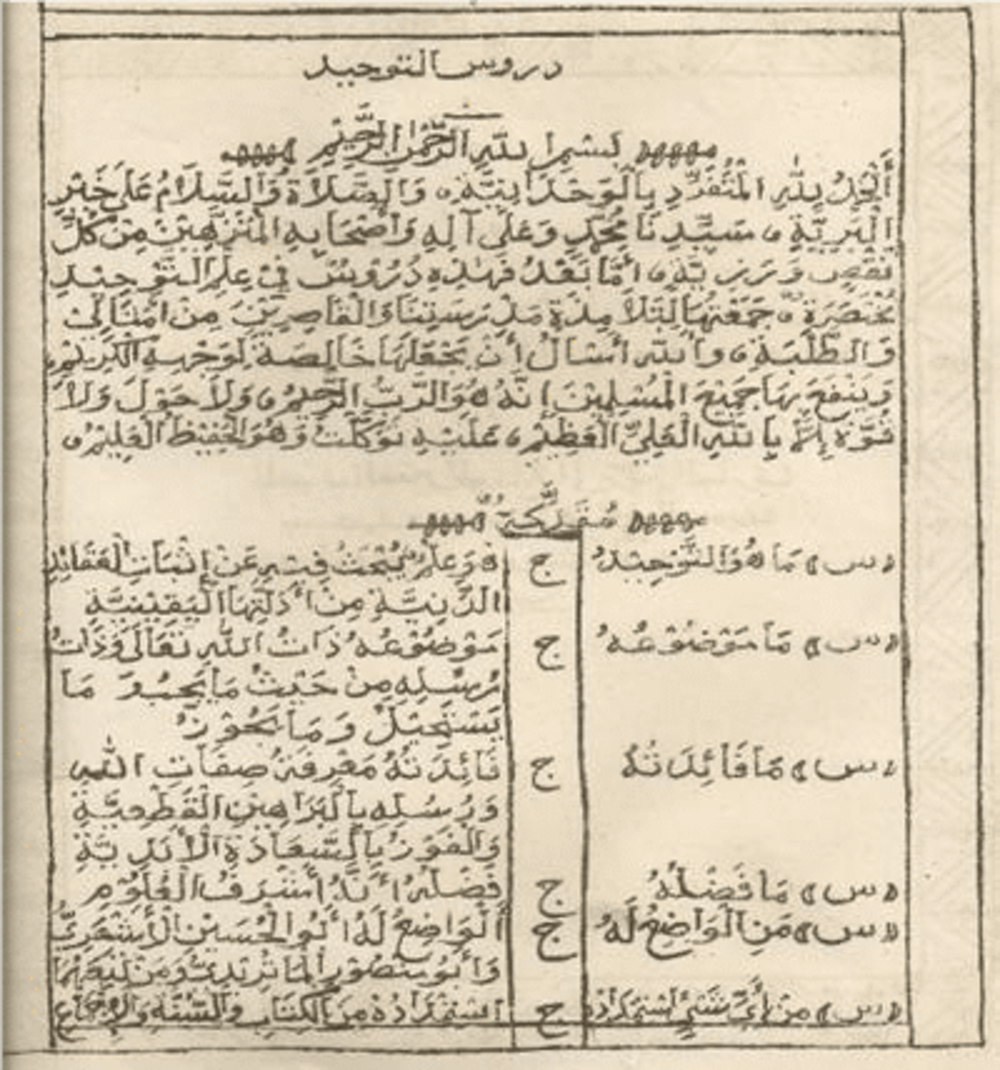 دروس التوحيد
بسم الله الرحمن الرحيم
أَلْحَمْدُ لِلّٰهِ الْمُتَفَرِّدِ بِالْوَحْدَانِيَّةِ، وَالصَّلَاةُ وَالسَّلَامُ عَلَى خَيْرِ
الْبَرِيَّةِ، سَيِّدِنَا مُحَمَّدٍ وَعَلَى آلِهِ وَأَصْحَابِهِ الْمُنَزَّهِيْنَ مِنْ كُلِّ
نَقْصٍ وَرَزِيَّةٍ، أَمَّا بَعْدُ فَهٰذِهِ دُرُوْسٌ فِيْ عِلْمِ التَّوْحِيْدِ
مُخْتَصَرَةٌ، جَمَعْتُهَا لِتَلَامِذَةِ مَدْرَسَتِنَا وَالْقَاصِرِيْنَ مِنْ أَمْثَالِيْ
وَالطَّلَبَةِ، وَاللّٰهَ أَسْأَلُ أَنْ يَجْعَلَهَا خَالِصَةً لِوَجْهِهِ الْكَرِيْمِ
وَيَنْفَعَ بِهَا جَمِيْعَ الْمُسْلِمِيْنَ إِنَّهُ هُوَ الرَّبُّ الرَّحِيْمُ، وَلَا حَوْلَ وَلَا
قُوَّةَ إِلَّا بِاللّٰهِ الْعَلِيِّ الْعَظِيْمِ، عَلَيْهِ تَوَكَّلْتُ وَهُوَ الْحَفِيْظُ الْعَلِيْمُ،
مُقَدِّمَةٌ
«س» مَا هُوَ التَّوْحِيْدُ ج هُوَ عِلْمٌ يُبْحَثُ فِيْهِ عَنْ إِثْبَاتِ الْعَقَائِدِ
الدِّيْنِيَّةِ مِنْ أَدِلَّتِهَا الْيَقِيْنِيَّةِ
«س» مَا مَوْضُوْعُهُ ج مَوْضُوْعُهُ ذَاتُ اللّٰهِ تَعَالَى وَذَاتُ
رُسُلِهِ مِنْ حَيْثُ مَا يَجِبُ وَ مَا
يَسْتَحِيْلُ وَمَا يَجُوْزُ
«س» مَا فَائِدَتُهُ ج فَائِدَتُهُ مَعْرِفَةُ صِفَاتِ اللّٰهِ
وَرُسُلِهِ بِالْبَرَاهِيْنِ الْقَطْعِيَّةِ
وَالْفَوْزُ بِالسَّعَادَةِ الْأَبَدِيَّةِ
«س» مَا فَضْلُهُ ج فَضْلُهُ أَنَّهُ أَشْرَفُ الْعُلُوْمِ
«س» مَنِ الْوَاضِعُ لَهُ ج أَلْوَاضِعُ لَهُ أَبُو الْحُسَيْنِ الْأَشْعَرِيُّ
وَأَبُوْ مَنْصُوْرٍ الْمَاتُرِيْدِيُّ وَمَنْ تَبِعَهُمَا
«س» مِنْ أَيِّ شَيْءٍ اسْتِمْدَادُهُ ج اسْتِمْدَادُهُ مِنَ الْكِتَابِ وَالسُّنَّةِ وَالْإِجْمَاعِ